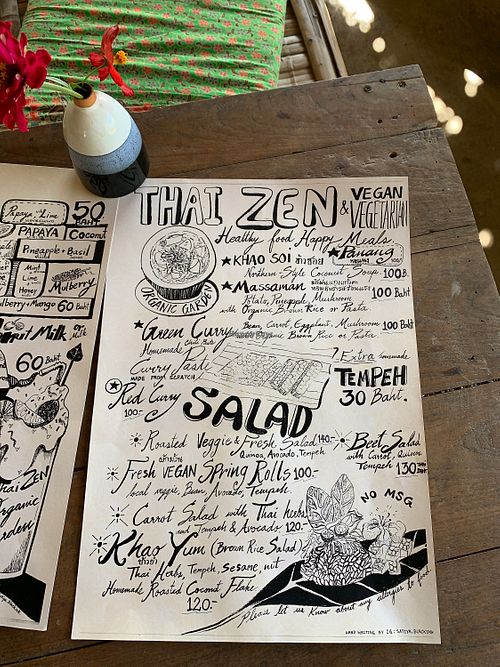 Papaya + Lime
50
BAHT
PAPAYA
Coconut
Pineapple + Basil
Mint
Lime
Honey
Mulberry
Mulberry + Mango 60 Baht
Coconut Milk
60 Baht
Thai ZEN
Organic
Garden
THAI ZEN & VEGAN
VEGETARIAN
Healthy food Happy Meals
ORGANIC GARDEN
★ KHAO SOI ข้าวซอย
★ Panang
Northern-Style Coconut Soup 100B.
★ Massaman
Potato, Pineapple, Mushroom 100 Baht
with Organic Brown Rice or Pasta
★ Green Curry
Bean, Carrot, Eggplant, Mushroom 100 Baht
Organic Brown Rice or Pasta.
Homemade
Curry Paste
MADE FROM SCRATCH
? Extra homemade
TEMPEH
30 Baht.
★ Red Curry
100.-
SALAD
Roasted Veggie & Fresh Salad 140.-
Quinoa, Avocado, Tempeh
Beet Salad
with Carrot, Quinoa
Tempeh 130
Fresh VEGAN Spring Rolls 100.-
local veggie, Bean, Avocado, Tempeh
NO MSG
Carrot Salad with Thai herbs
and Tempeh & Avocado 120.-
Khao Yum (Brown Rice Salad)
ข้าวยำ
Thai Herbs, Tempeh, Sesame, nut
Homemade Roasted Coconut Flake
120.-
Please let us know about any allergies to food
HAND WRITING BY IG: